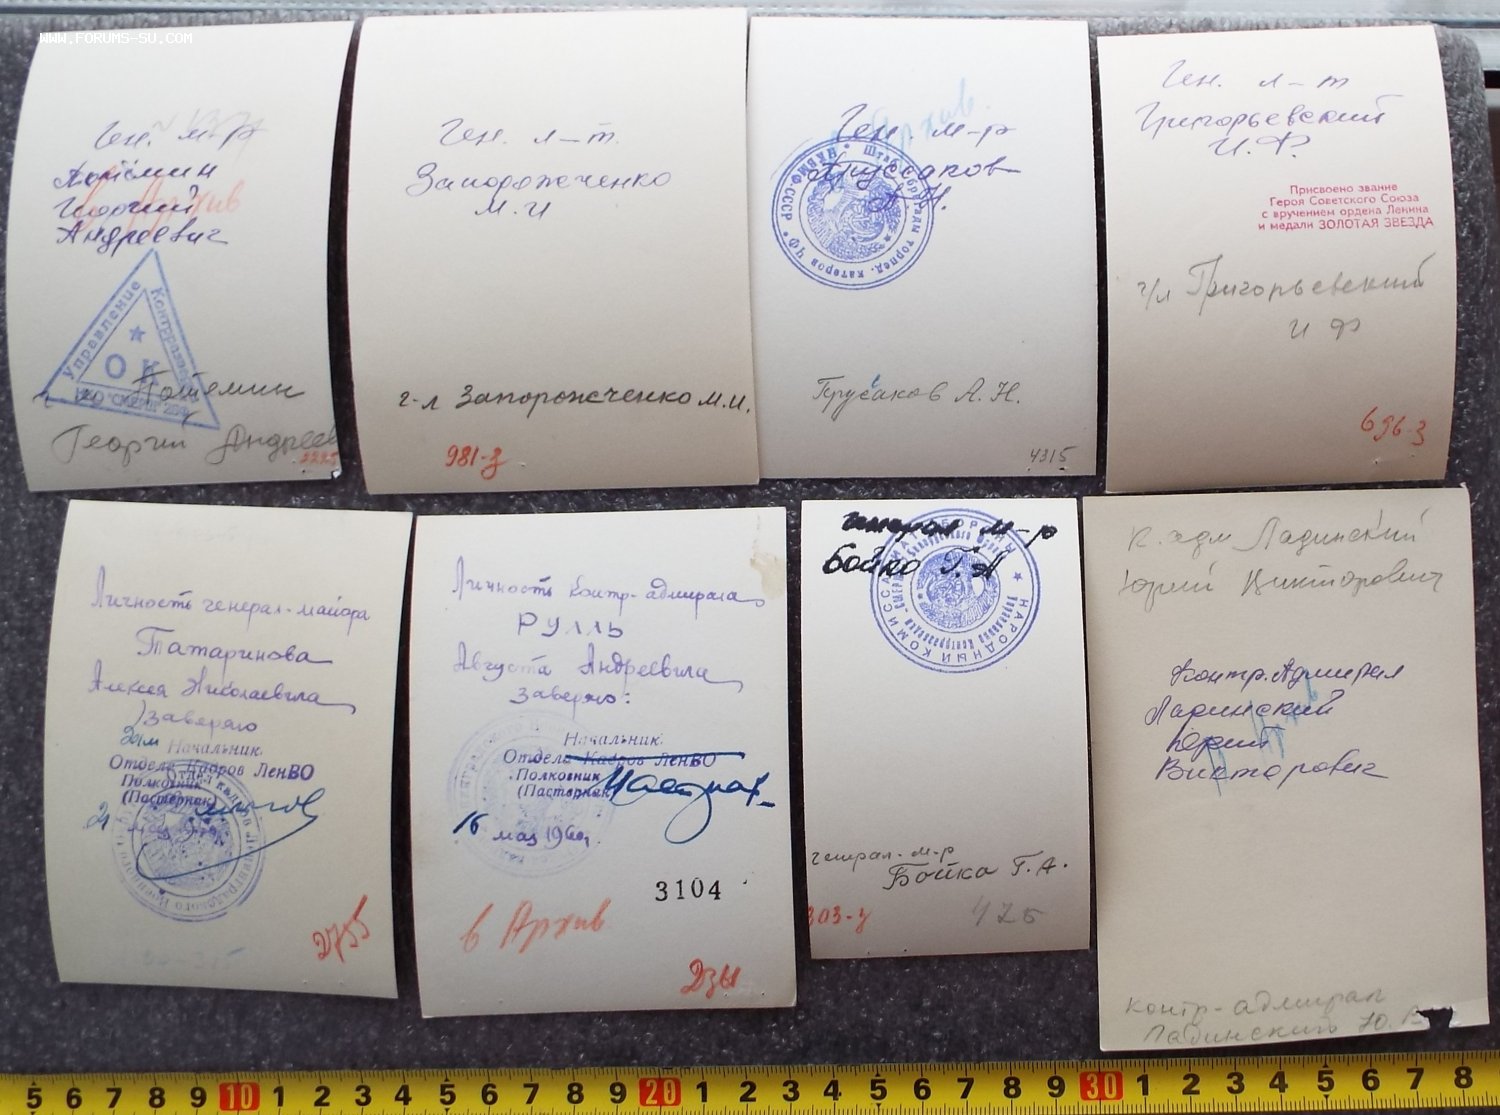 WWW.FORUMS-SU.COM
Ген. м-р
Потёмин
Георгий
Андреевич
Архив
Управление Контрразведки
О К
НКО "СМЕРШ"
Потемин
Георгий Андреев
2225
Ген. л-т.
Запорожченко
М. И
г-л Запорожченко М.И.
981-з
Архив.
Ген. м-р
Пруссаков
А Н.
НКВМФ-СССР • Штаб бригады торпед. катеров ЧФ •
Прусаков А. Н.
4315
Ген. л-т
Григорьевский
И. Ф.
Присвоено звание
Героя Советского Союза
с вручением ордена Ленина
и медали ЗОЛОТАЯ ЗВЕЗДА
г/л Григорьевский
И Ф
696-з
Личность генерал-майора
Татаринова
Алексея Николаевича
Заверяю
Начальник
Отдела Кадров ЛенВО
Полковник
(Пастернак)
21
2755
Личность Контр-адмирала
РУЛЛЬ
Августа Андреевича
заверяю:
Начальник
Отдела Кадров ЛенВО
Полковник
(Пастернак
16 мая 1960г.
3104
в Архив
генерал м-р
Бойко Г. А
НАРОДНЫЙ КОМИССАРИАТ ОБОРОНЫ
генерал-м-р
Бойко Г. А.
303-з
425
к. адм Ладинский
Юрий Викторович
Контр. Адмирал
Ладинский
Юрий
Викторович
контр-адмирал
Ладинский Ю. В
5 6 7 8 9 10 1 2 3 4 5 6 7 8 9 20 1 2 3 4 5 6 7 8 9 30 1 2 3 4 5 6 7 8